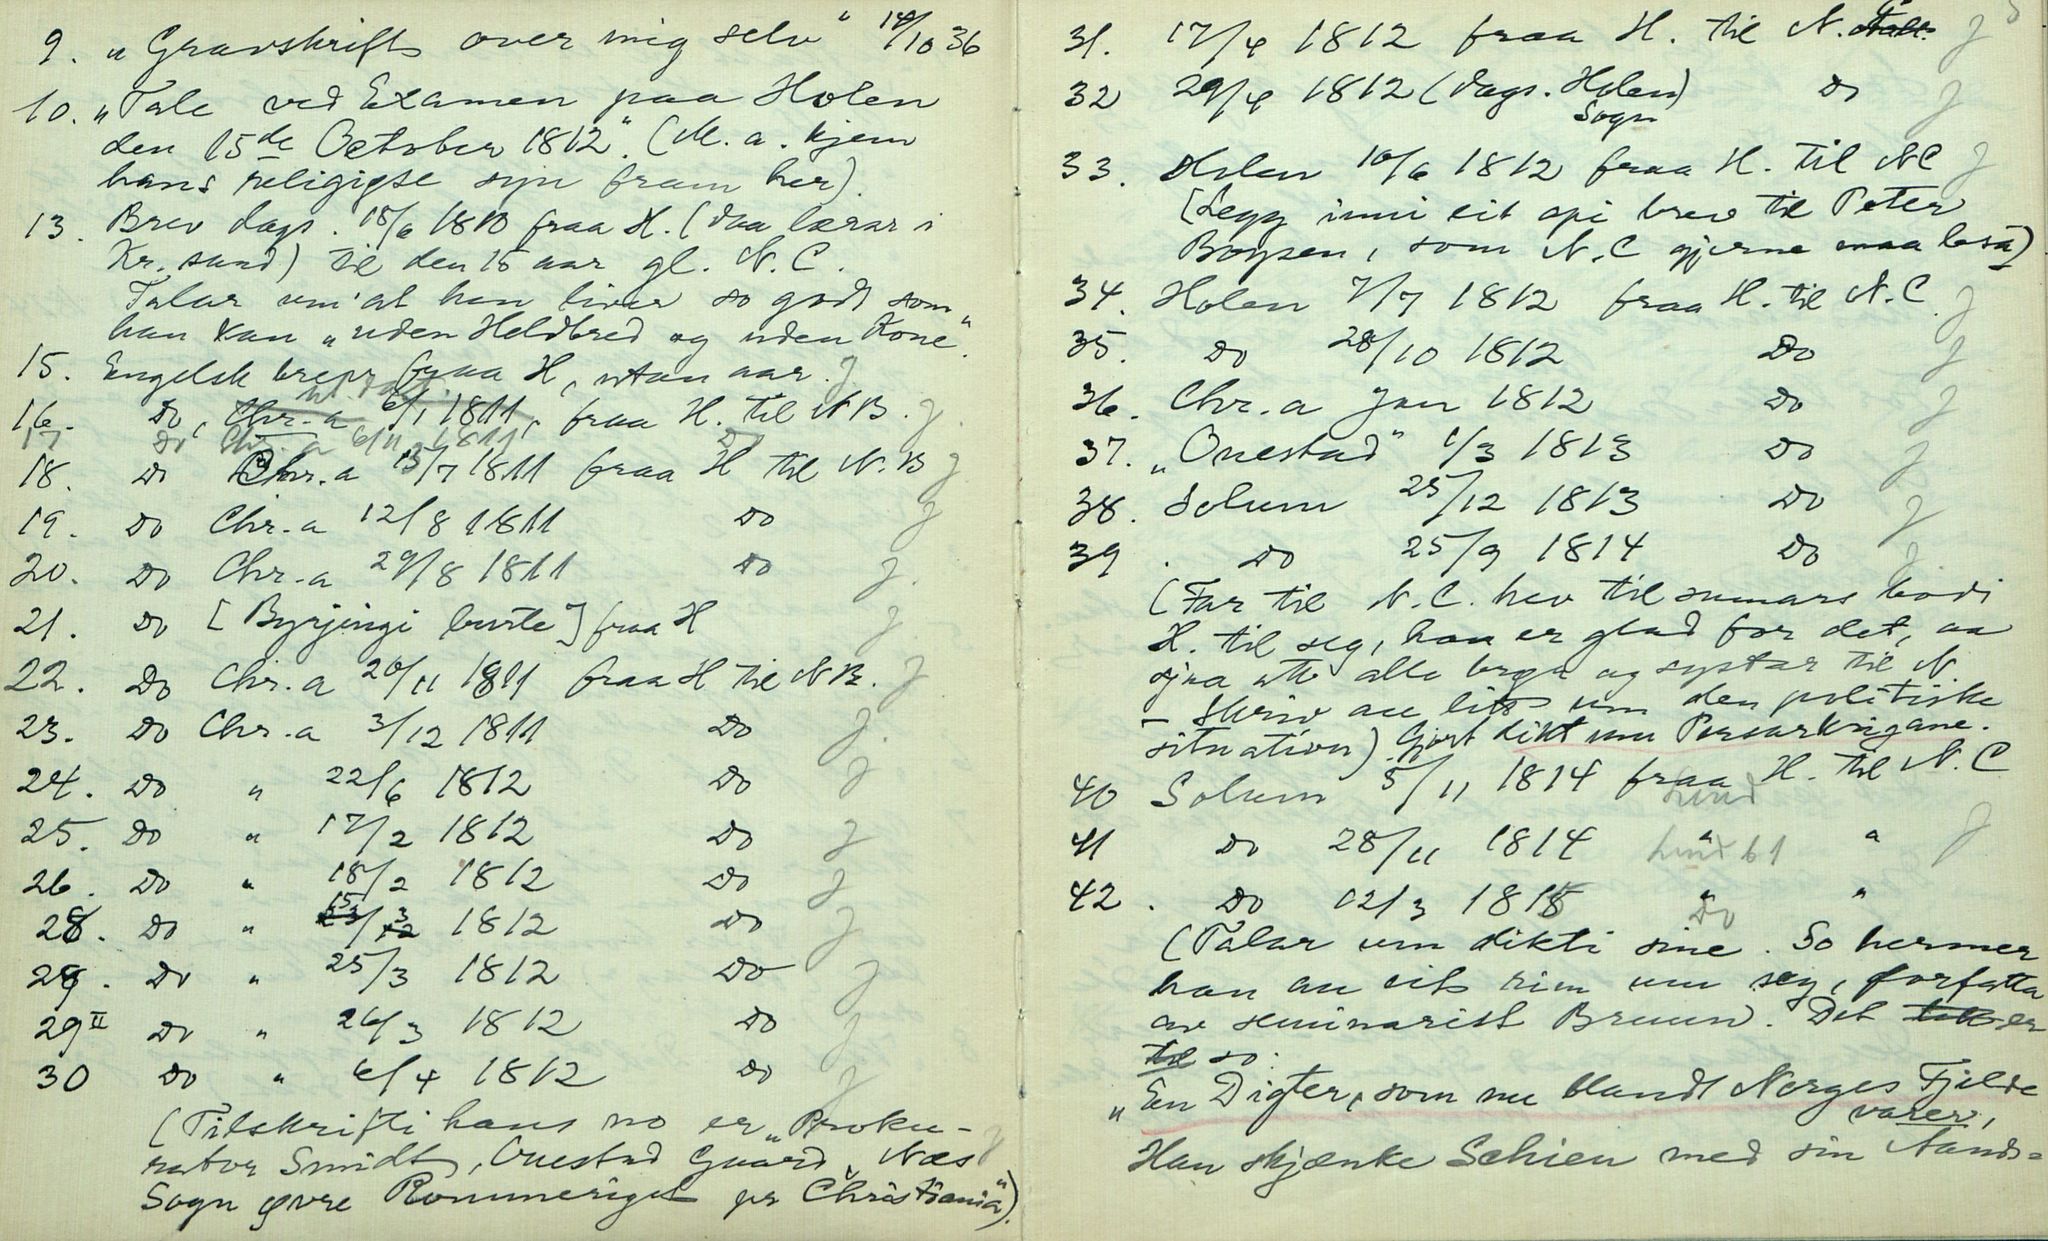 9. „Gravskrift over mig selv“ 14/10 36
10. „Tale ved Examen paa Holen
den 15de October 1812“. (M. a. kjem
hans religiøse syn fram her).
13. Brev dags. 18/6 1810 fraa H. (daa lærar i
Kr.sand) til den 15 aar gl. N. C.
Talar um at han liver so godt som
han kan „uden Heldbred og uden Kone“.
15. Engelsk brev fraa H, utan aar. J
16. Do, Chr.a 6/1 1811, fraa H. til N B. J
17 Do Chr. a 6/11 1811 Do
18. Do Chr.a 13/7 1811 fraa H til N. B J
19. Do Chr.a 12/8 1811 Do J
20. Do Chr.a 29/8 1811 Do J.
21. Do [Byrjingi burte] fraa H J
22. Do Chr.a 20/11 1811 fraa H til N B. J
23. Do Chr.a 3/12 1811 Do J.
24. Do „ 22/6 1812 Do J
25. Do „ 17/2 1812 Do J
26. Do „ 18/2 1812 Do J
28. Do „ 15/3 1812 Do J
29. Do „ 25/3 1812 Do J
29 II Do „ 26/3 1812 Do J
30 Do „ 6/4 1812 Do J
(Tilskrifti hans no er „Proku-
rator Smidt, Onestad Gaard, Næs
Sogn øvre Rommeriget pr Christiania“).
31. 17/4 1812 fraa H. til N. C J
32 29/4 1812 (dags. Holen Sogn) Do J
33. Holen 16/6 1812 fraa H. til N C J
(Legg inni eit opi brev til Peter
Boysen, som N. C gjerne maa lesa)
34. Holen 7/7 1812 fraa H. til N. C J
35. Do 28/10 1812 Do J
36. Chr.a Jan 1812 Do J
37. „Onestad“ 1/3 1813 Do J
38. Solum 25/12 1813 Do J
39. Do 25/9 1814 Do J
(Far til N. C. hev til sumars bodi
H. til seg, han er glad for det, aa
sjaa att alle brør og systar til N.
– Skriv au litt um den politiske
situation). Gjort dikt um Persarkrigane.
40 Solum 5/11 1814 fraa H. til N. C
Lund
41 Do 28/11 1814 „ „ J
42. Do 12/3 1815 „ „
Do
(Talar um dikti sine. So hermer
han au eit rim um seg, forfatta
av seminarist Bruun. Det er
so:
„En Digter, som nu blandt Norges Fjelde
varer,
Han skjænke Schien med sin Aands=